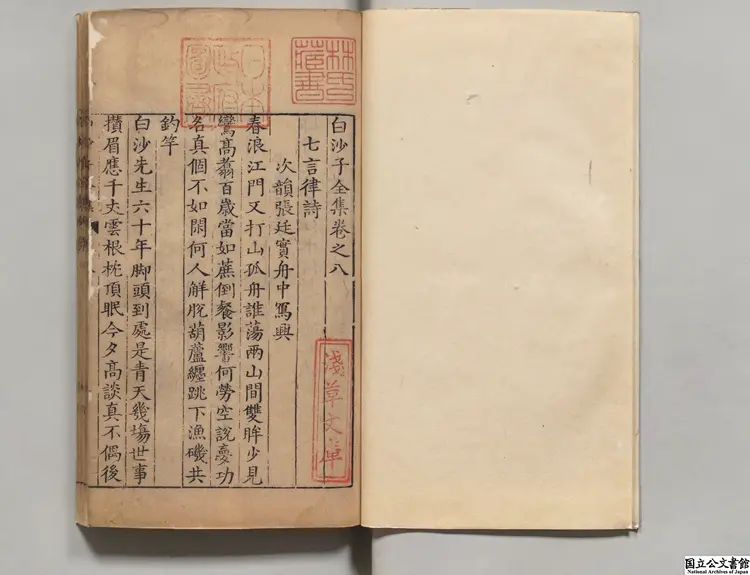 林氏藏書
日本政府圖書
白沙子全集卷之八
七言律詩
次韻張廷實舟中寫興
春浪江門又打山孤舟誰蕩兩山間雙眸少見
鸞高翥百歲當如蔗倒餐影響何勞空說夢功
名真個不如閑何人解脫葫蘆纏跳下漁磯共
釣竿
白沙先生六十年脚頭到處是青天幾塲世事
攢眉應千丈雲根枕頂眠今夕高談真不偶後
淺草文庫
国立公文書館
National Archives of Japan